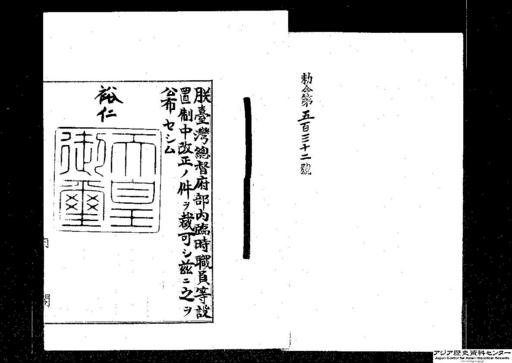 勅令第五百三十二號
朕臺灣總督府部內臨時職員等設
置制中改正ノ件ヲ裁可シ茲ニ之ヲ
公布セシム
裕仁
天皇
御璽
內
閣
アジア歴史資料センター
Japan Center for Asian Historical Records